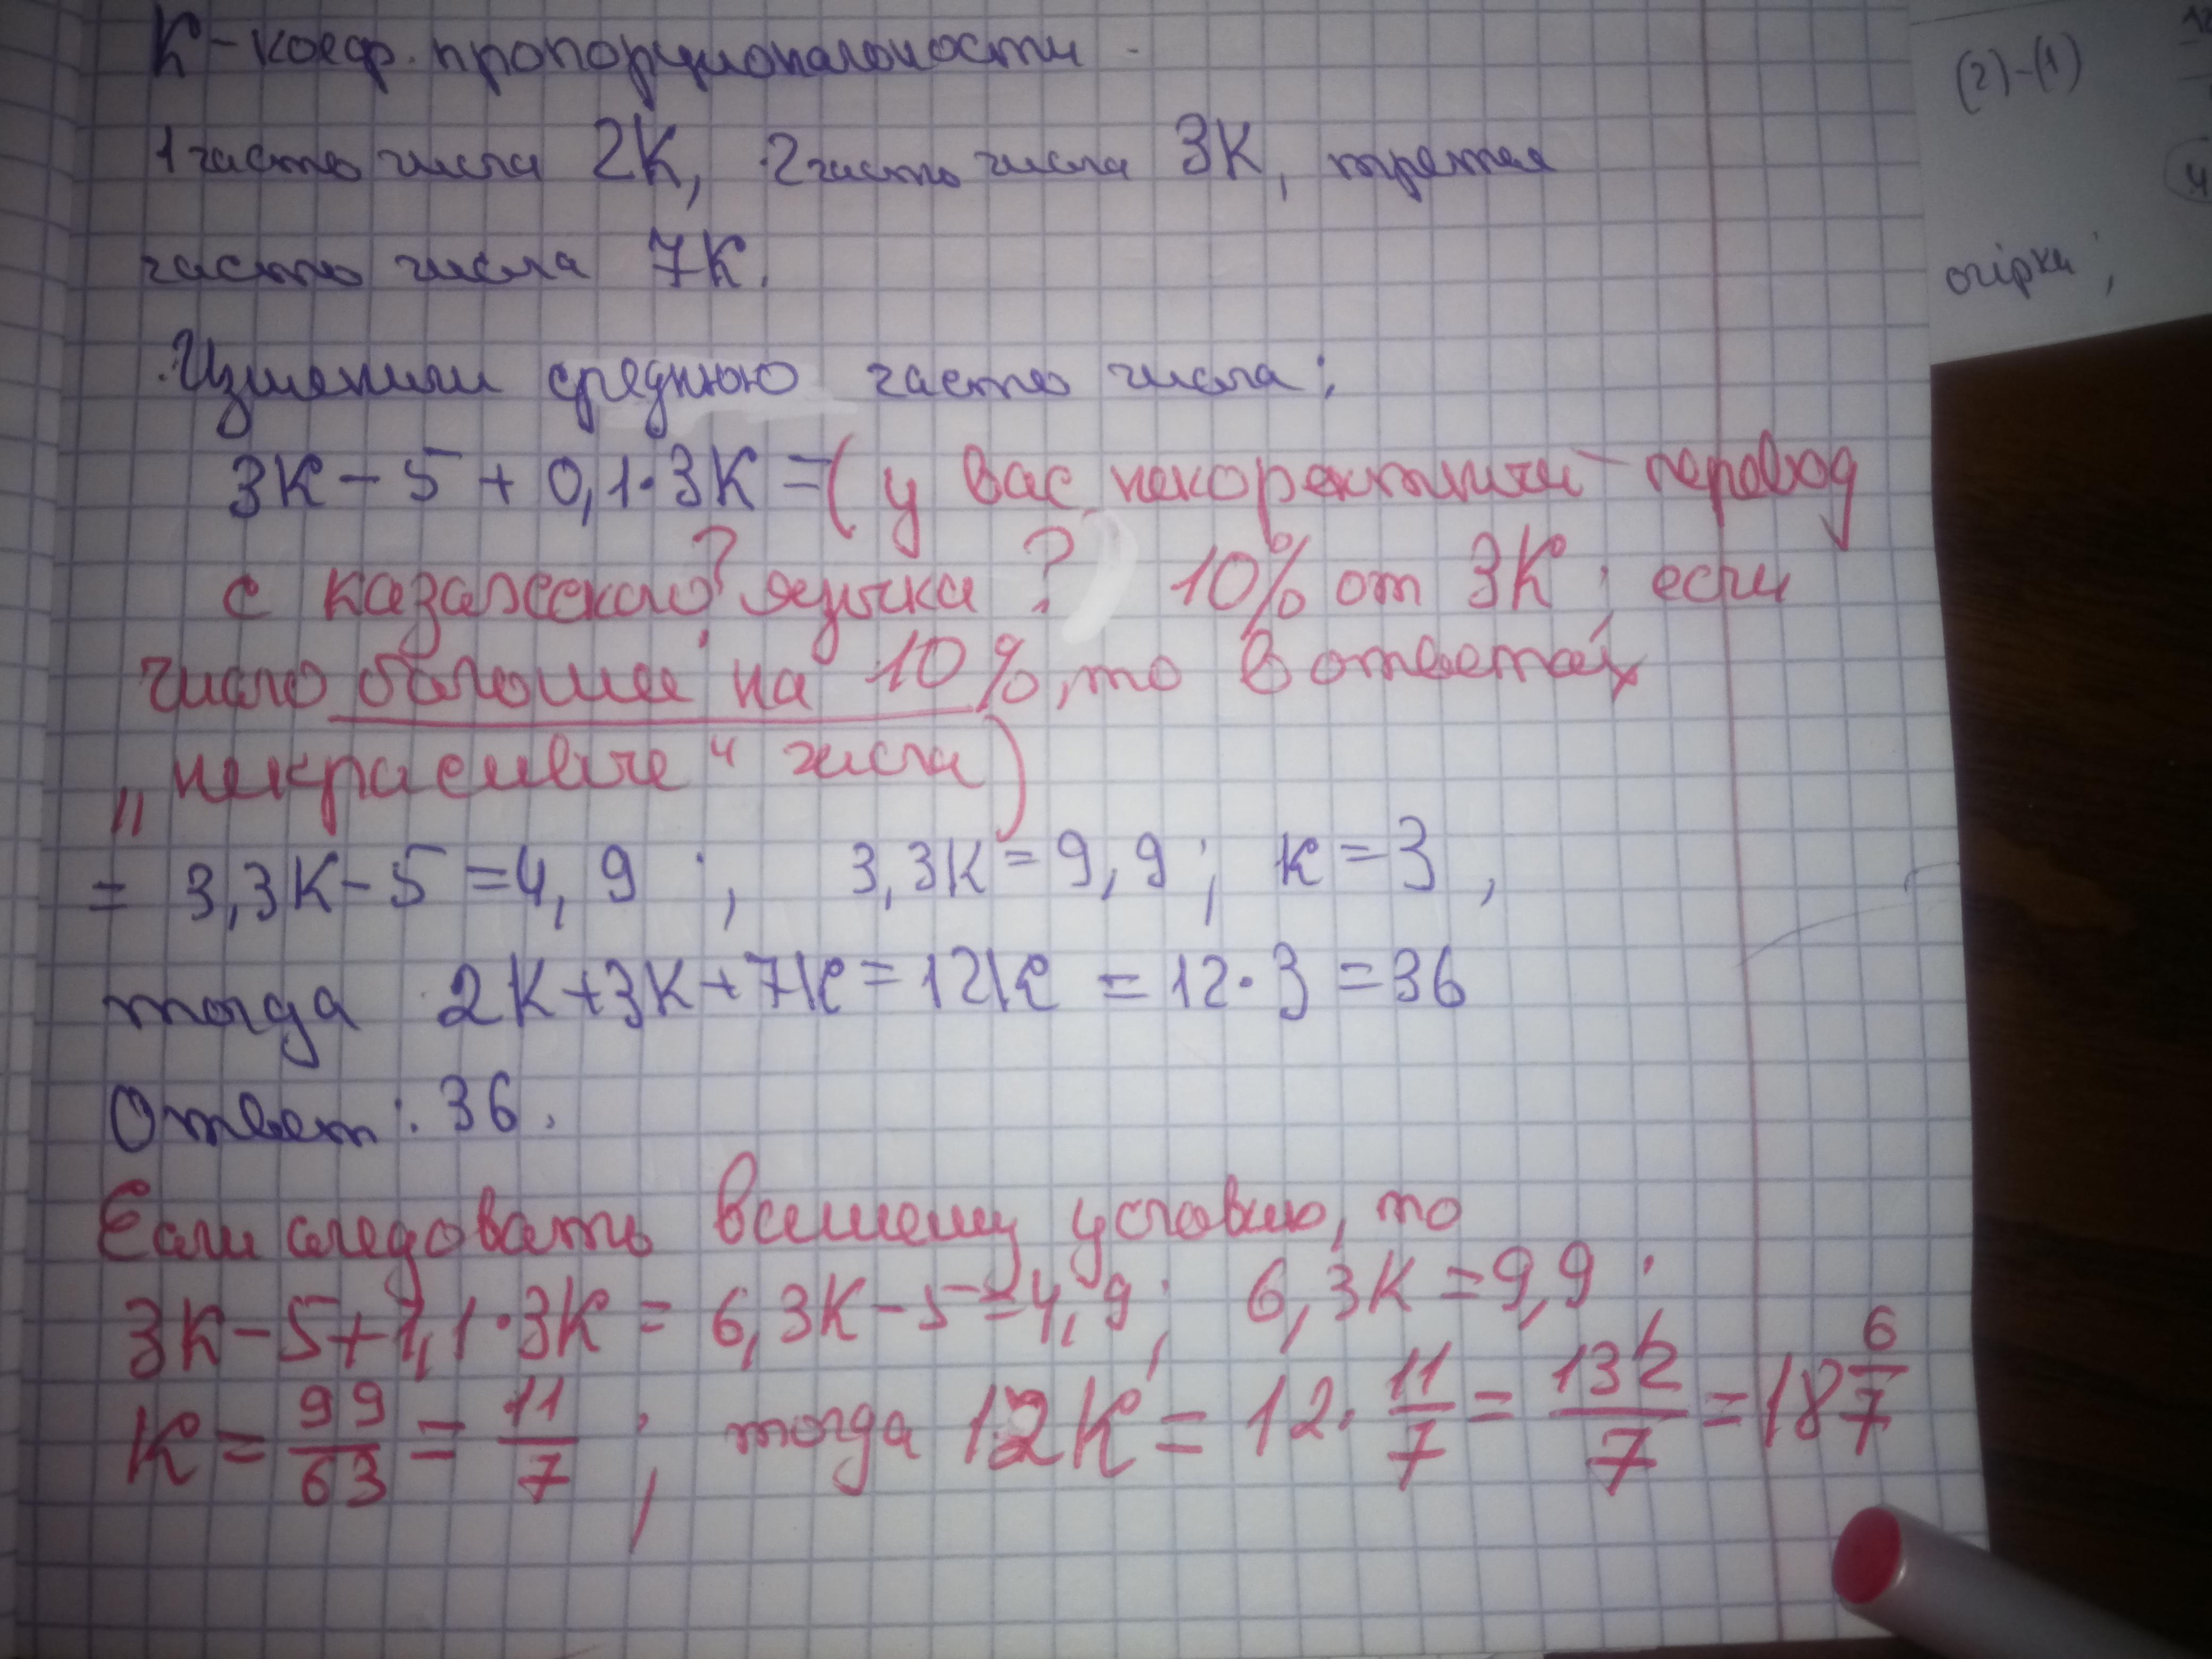 К - коэф. пропорциональности
1 часть числа 2К, 2 часть числа 3К, третья
часть числа 7К.
Изменили среднюю часть числа:
3К - 5 + 0,1·3К = (у вас некоректный перевод
с казахского? языка? 10% от 3К; если
число большее на 10%, то в ответах
"некрасивые" числа)
= 3,3К - 5 = 4,9 ; 3,3К = 9,9 ; К = 3 ,
тогда 2К + 3К + 7К = 12К = 12·3 = 36
Ответ: 36.
Если следовать вашему условию, то
3К - 5 + 1,1·3К = 6,3К - 5 = 4,9 ; 6,3К = 9,9 ;
К = 99/63 = 11/7 ; тогда 12К = 12· 11/7 = 132/7 = 18 6/7
(2)-(1)
огірки ;